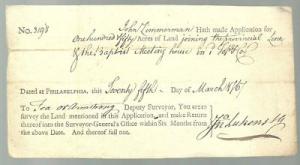 No. 3198 John Zimmerman Hath made Application for
One hundred & fifty Acres of Land joining the Provincial Line
& the Baptist Meeting house in
Dated at PHILADELPHIA, this Twenty fifth Day of March
To Deputy Surveyor, You are to
survey the Land mentioned in this Application, and make Return
thereof into the Surveyor-General's Office within Six Months from
the above Date. And thereof fail not.
Jno Lukens SG